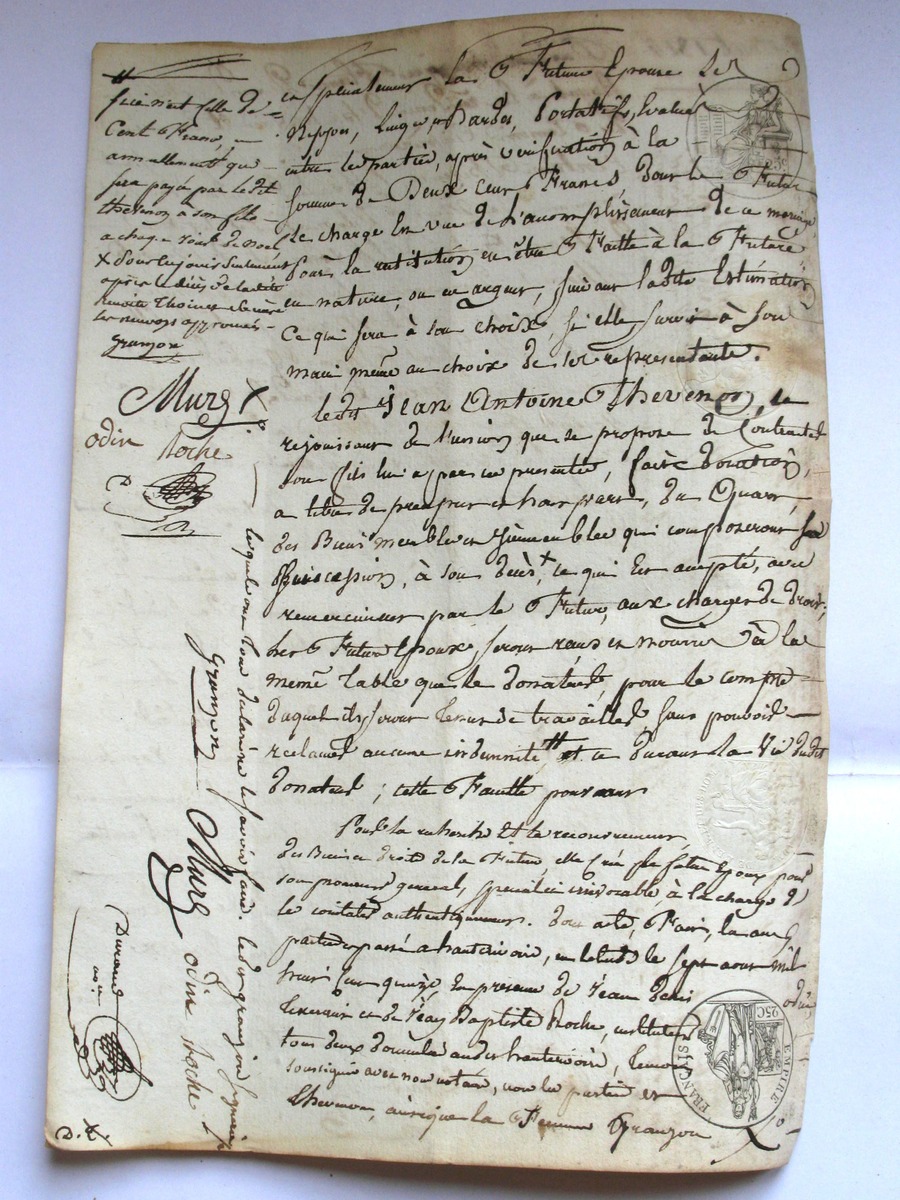 la Future Epouse les
Nippes, Linges, Hardes, Portatifs, Evalués
entre les parties, après vérification à la
somme de Deux cent Francs, dont le Futur
se charge En vue de L'accomplissement de ce mariage
pour la restitution en être Faitte à la Future
en nature, ou en argent, suivant ladite Estimation
Ce qui sera à son choix, si elle survit à son
mari même au choix de ses représentants.
ledit Jean Antoine Thevenon, se
rejouissant de l'union que se propose de Contracter
son fils lui a par ces presentes, fait donation,
a titre de preciput et hors part, du Quart,
des Biens meubles et immeubles qui composeront sa
Succession, à son décès, ce qui Est accepté, avec
remerciment par le Futur, aux charges de droit;
les Futurs Epoux, seront tenus et nourris à la
même table que le donateur, pour le compte
duquel ils seront tenus de travailler, sans pouvoir
reclamer aucune indemnité et ce durant la Vie dudit
donateur; cette Faculté
Pour la recherche Et le recouvrement
des Biens et droits de la Future elle Crée son futur Epoux pour
son procureur general, special et irrévocable, à la charge de
le constater authentiquement. Dont acte, Fait, lu aux
parties et passé a hauterivoire, en l'etude le sept aout mil
huit cent quinze, En presence de Jean denis
et de Jean Baptiste Roche, instituteur
tous deux domiciliés audit hauterivoire, temoins
soussignés avec nous notaire, non les parties et
Thevenon, ainsi que la Femme Granjon
cent Francs,
annuellement que
sera payé par ledit
thevenon a son fils
a chaque de noel
X dont la jouissance
après le décès de ladite
les renvois approuvés
granjon
Mure
odin Roche
lesquels ont tous déclaré le savoir faire. ledit granjon
granjon Mure odin Roche
Durand
odin
EMPIRE FRANÇAIS
25C